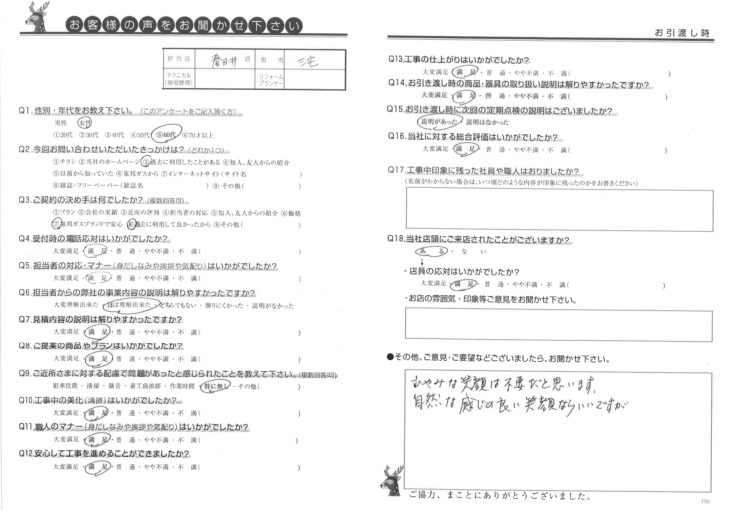 お客様の声をお聞かせ下さい
担当店 春日井 店 担当 三宅
テクニカル(現場管理) リフォームプランナー
Q1. 性別・年代をお教え下さい。(このアンケートをご記入頂く方)
男性 女性
①20代 ②30代 ③40代 ④50代 ⑤60代 ⑥70才以上
Q2. 今回お問い合わせいただいたきっかけは?(どれか1つ)
①チラシ ②当社のホームページ ③過去に利用したことがある ④知人、友人からの紹介
⑤以前から知っていた ⑥東邦ガスから ⑦インターネットサイト(サイト名 )
⑧雑誌・フリーペーパー(雑誌名 ) ⑨その他( )
Q3. ご契約の決め手は何でしたか?(複数回答可)
①プラン ②会社の実績 ③近所の評判 ④担当者の対応 ⑤知人、友人からの紹介 ⑥価格
⑦東邦ガスブランドで安心 ⑧過去に利用して良かったから ⑨その他( )
Q4. 受付時の電話応対はいかがでしたか?
大変満足・満 足・普 通・やや不満・不 満( )
Q5. 担当者の対応・マナー(身だしなみや挨拶や気配り)はいかがでしたか?
大変満足・満 足・普 通・やや不満・不 満( )
Q6. 担当者からの弊社の事業内容の説明は解りやすかったですか?
大変理解出来た・ほぼ理解出来た・どちらでもない・解りにくかった・説明がなかった
Q7. 見積内容の説明は解りやすかったですか?
大変満足・満 足・普 通・やや不満・不 満( )
Q8. ご提案の商品やプランはいかがでしたか?
大変満足・満 足・普 通・やや不満・不 満( )
Q9. ご近所さまに対する配慮で問題があったと感じられたことを教えて下さい。(複数回答可)
駐車位置・清掃・騒音・着工前挨拶・作業時間・特に無し・その他( )
Q10. 工事中の美化(清掃)はいかがでしたか?
大変満足・満 足・普 通・やや不満・不 満( )
Q11. 職人のマナー(身だしなみや挨拶や気配り)はいかがでしたか?
大変満足・満 足・普 通・やや不満・不 満( )
Q12. 安心して工事を進めることができましたか?
大変満足・満 足・普 通・やや不満・不 満( )
お引渡し時
Q13. 工事の仕上がりはいかがでしたか?
大変満足・満 足・普 通・やや不満・不 満( )
Q14. お引き渡し時の商品・器具の取り扱い説明は解りやすかったですか?
大変満足・満 足・普 通・やや不満・不 満( )
Q15. お引き渡し時に次回の定期点検の説明はございましたか?
説明があった・説明はなかった
Q16. 当社に対する総合評価はいかがでしたか?
大変満足・満 足・普 通・やや不満・不 満( )
Q17. 工事中印象に残った社員や職人はおりましたか?
(名前がわからない場合は、いつ頃どのような内容が印象に残ったのかをお書きください)
Q18. 当社店頭にご来店されたことがございますか?
あ る・な い
↓
・店員の応対はいかがでしたか?
大変満足・満 足・普 通・やや不満・不 満( )
・お店の雰囲気・印象等ご意見をお聞かせ下さい。
●その他、ご意見・ご要望などございましたら、お聞かせ下さい。
むやみな笑顔は不要だと思います。
自然な感じの良い笑顔ならいいですが
ご協力、まことにありがとうございました。